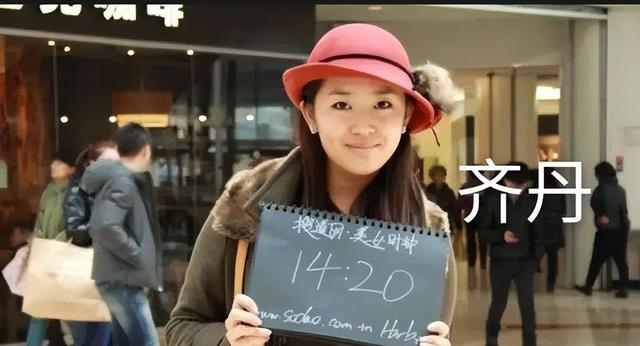 咖啡
齐丹
搜道网:美女时钟
14:20
www.sodao.com in Harb